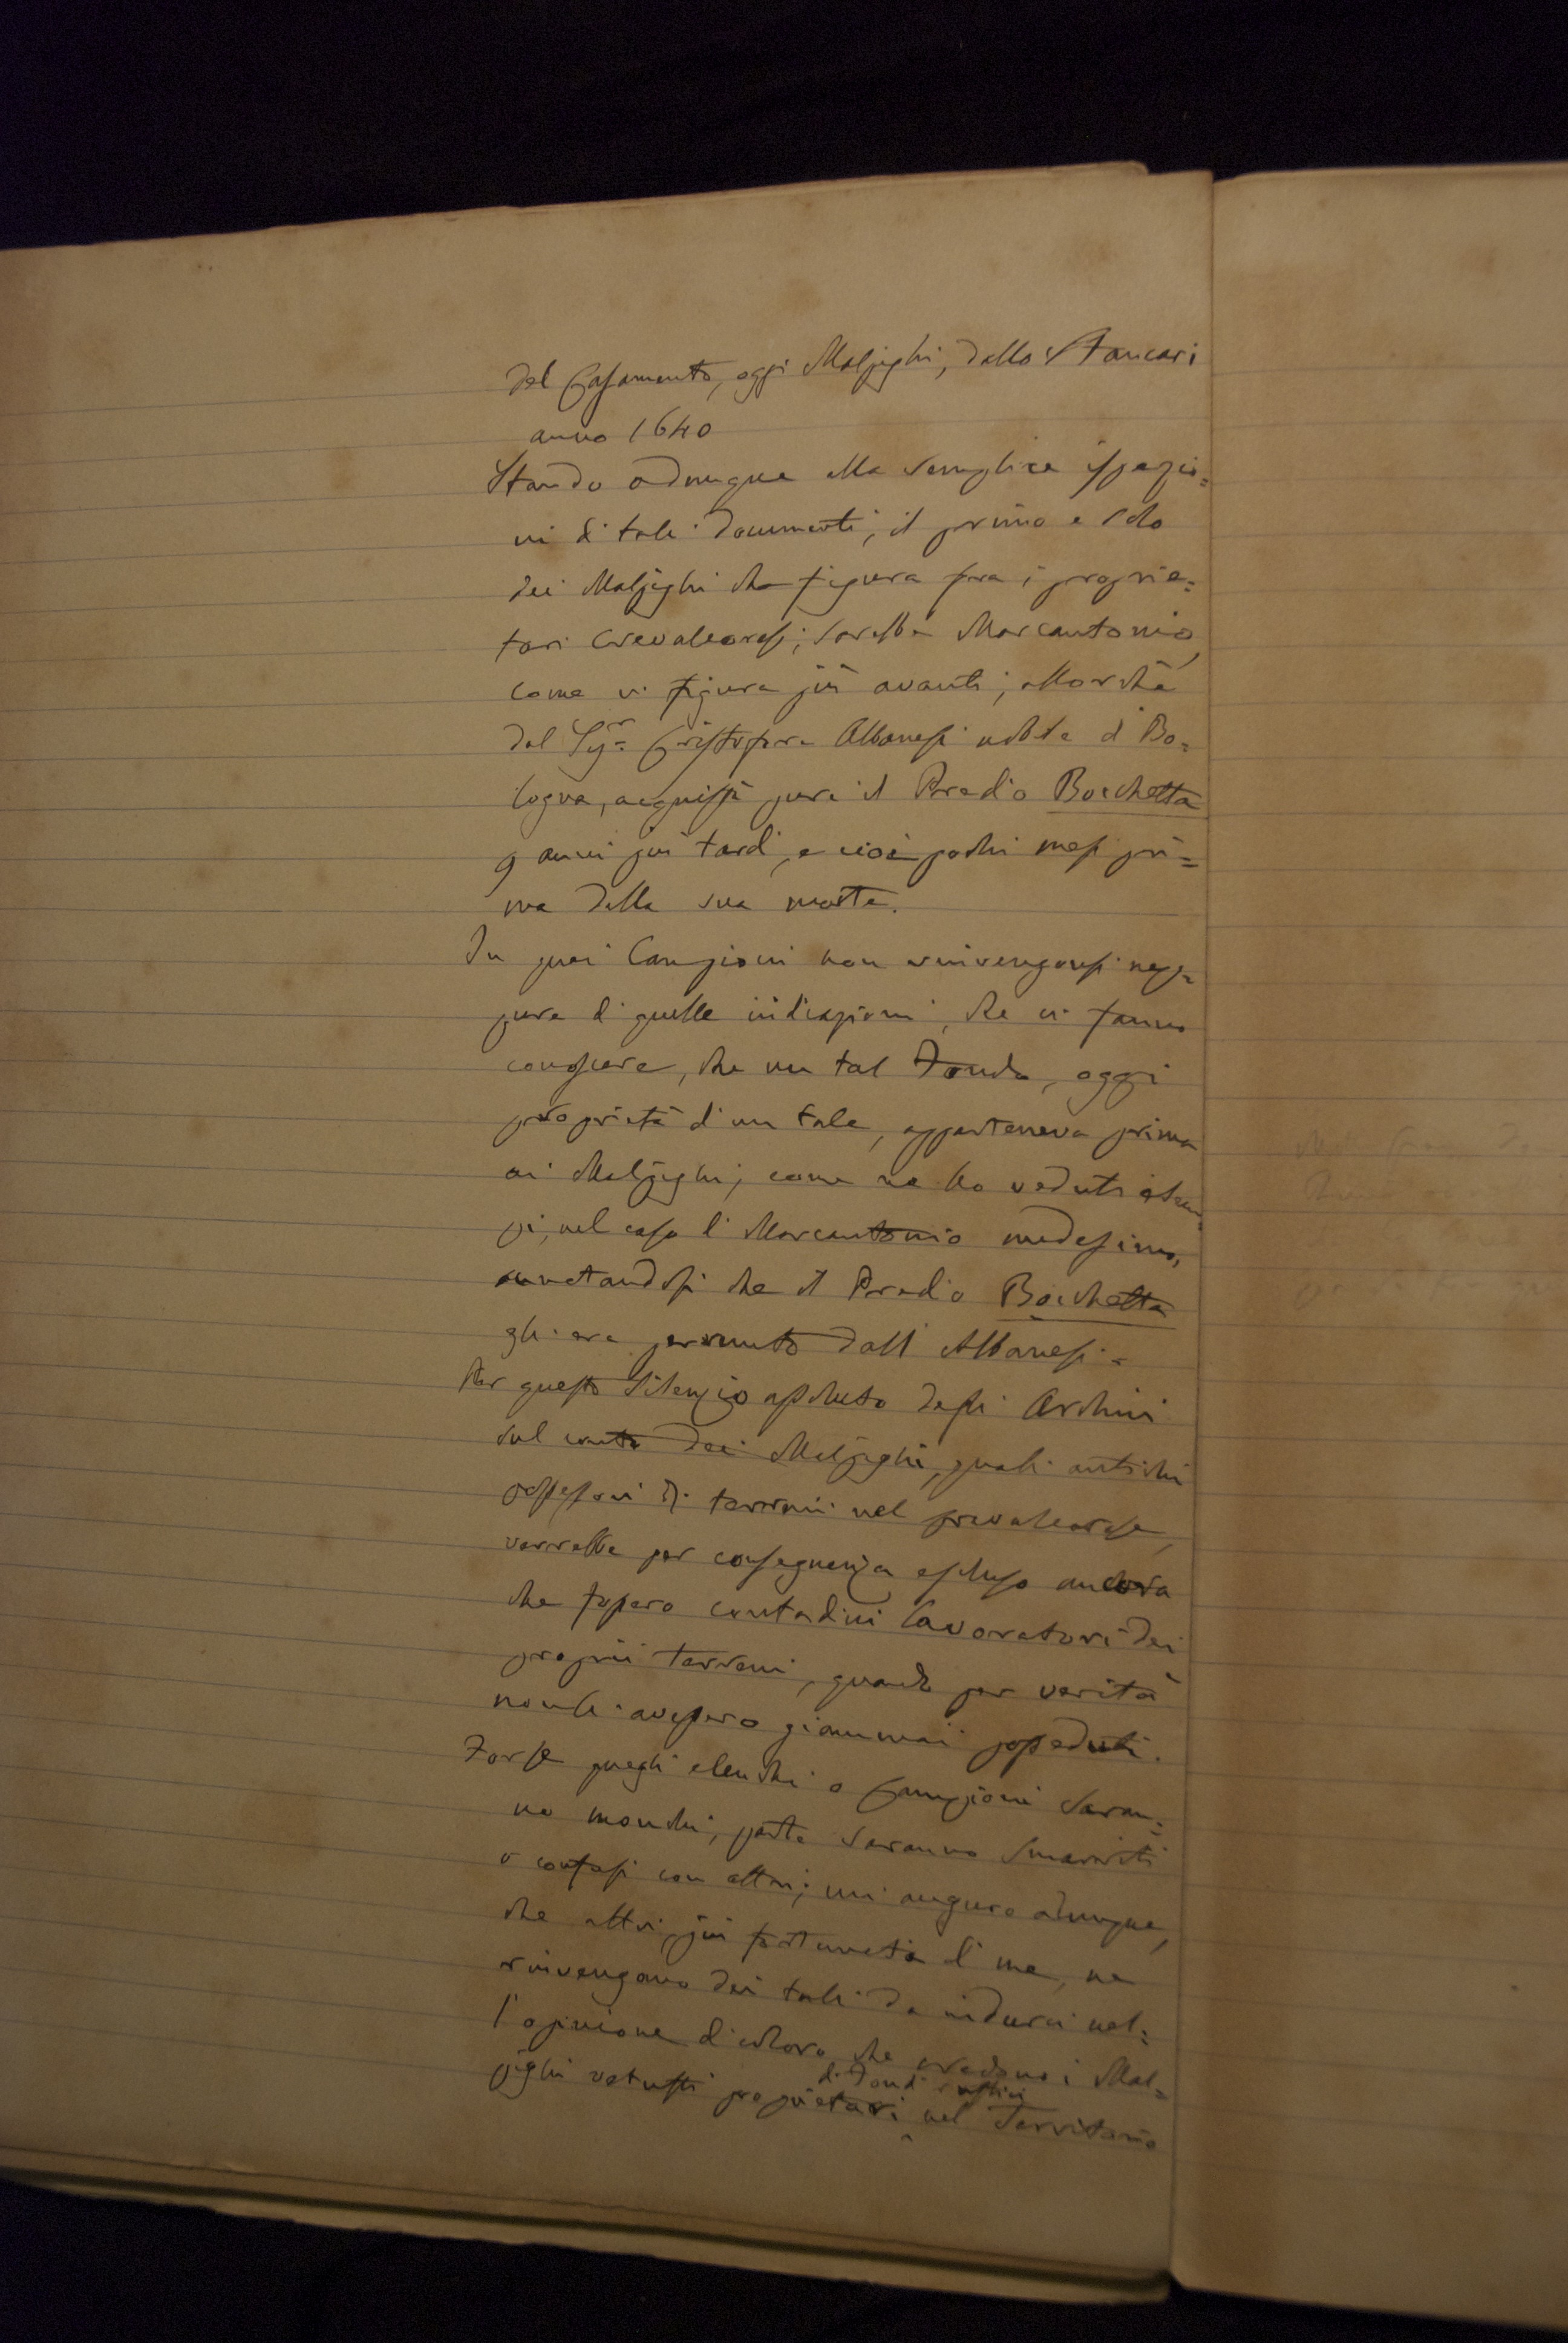 del Casamento, oggi Malpighi, dallo Stancari
anno 1640
Stando adunque alla semplice ispezio=
ni di tali documenti, il primo e solo
dei Malpighi che figura fra i proprie=
tari Crevalcoresi, sarebbe Marcantonio,
come vi figura più avanti, allorchè
dal Sig.r Cristoforo Albanesi nobile di Bo=
logna, acquistò pure il Predio Bocchetta
9 anni più tardi, e cioè pochi mesi pri=
ma della sua morte.
In quei Campioni non rinvengonsi nep=
pure di quelle indicazioni, che ci fanno
conoscere, che un tal Fondo, oggi
proprietà d'un tale, apparteneva prima
ai Malpighi, come ne ho veduti esem
pi, nel caso di Marcantonio medesimo,
annotandosi che il Predio Bocchetta
gli era pervenuto dall' Albanesi =
Per questo silenzio assoluto degli Archivi
sul conto dei Malpighi, quali antichi
possessori di terreni nel Crevalcorese,
verrebbe per conseguenza escluso ancora
che fossero contadini lavoratori dei
proprii terreni, quando per verità
non li avessero giammai posseduti.
Forse quegli elenchi o Campioni saran=
no monchi, parte saranno smarriti
o confusi con altri; mi auguro adunque,
che altri, più fortunato di me, ne
rinvengano dei tali da indurci nel=
l'opinione di coloro che credono i Mal=
pighi vetusti proprietari di Fondi rustici nel Territorio